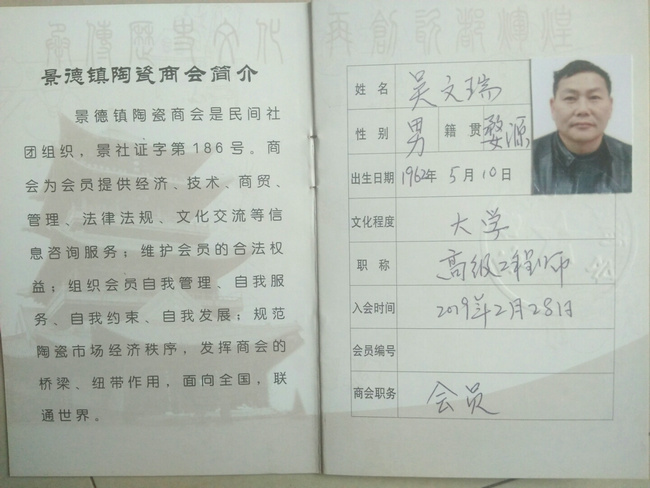 承傳歷史文化
景德镇陶瓷商会简介
景德镇陶瓷商会是民间社
团组织，景社证字第186号。商
会为会员提供经济、技术、商贸、
管理、法律法规、文化交流等信
息咨询服务；维护会员的合法权
益；组织会员自我管理、自我服
务、自我约束、自我发展；规范
陶瓷市场经济秩序，发挥商会的
桥梁、纽带作用，面向全国，联
通世界。
再創新輝煌
姓名 吴文瑞
性别 男 籍贯 婺源
出生日期 1962年5月10日
文化程度 大学
职称 高级工程师
入会时间 2019年2月28日
会员编号
商会职务 会员